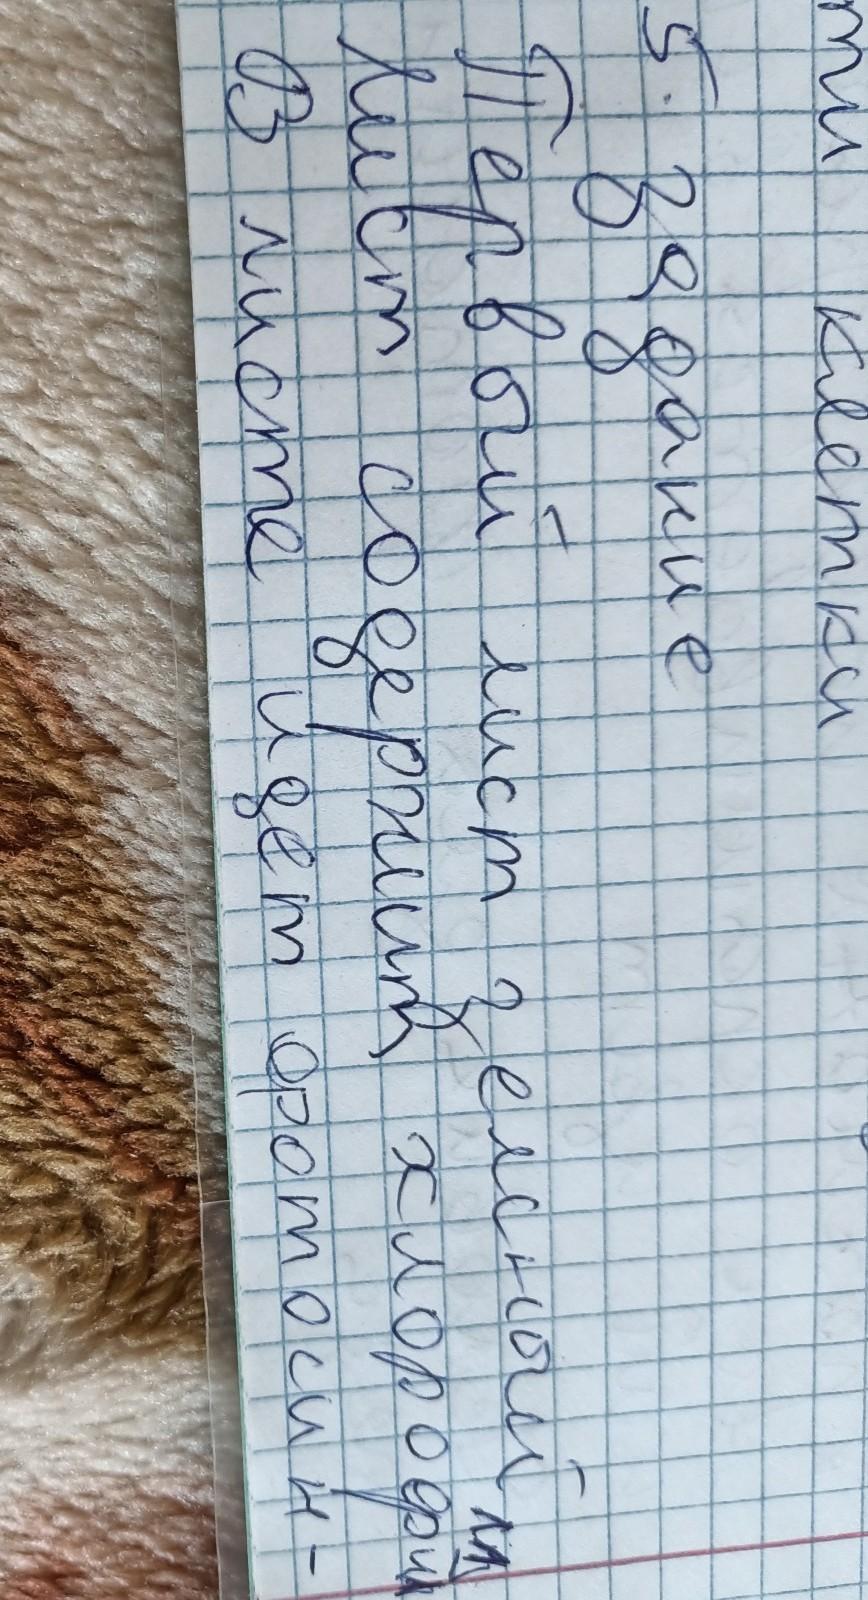 ти клетки
5. Задание
Первый лист зеленый
Лист содержит хлорофил
В листе идет фотосин-